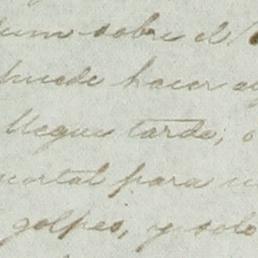 sobre el
puede hacer
llegue tarde; o
mortal para
golpes, y solo